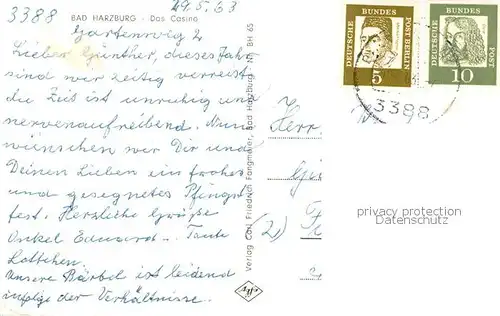 3388
29.5.63
BAD HARZBURG - Das Casino
Gartenweg 2
Lieber Günther, dieses Jahr
sind wir zeitig verreist
die Zeit ist unruhig und
nervenaufreibend. Nun
wünschen wir Dir und
Deinen Lieben ein frohes
und gesegnetes Pfingst-
fest. Herzliche Grüße
Onkel Eduard - Tante
Lottchen.
Unsere Bärbel ist leidend
infolge der Verhältnisse.
Verlag Carl Friedrich Fangmeier, Bad Harzburg · Nr. BH 65
DEUTSCHE BUNDES POST BERLIN
5
DEUTSCHE BUNDES POST
10
3388
Herr
(2)
privacy protection
Datenschutz
Agfa